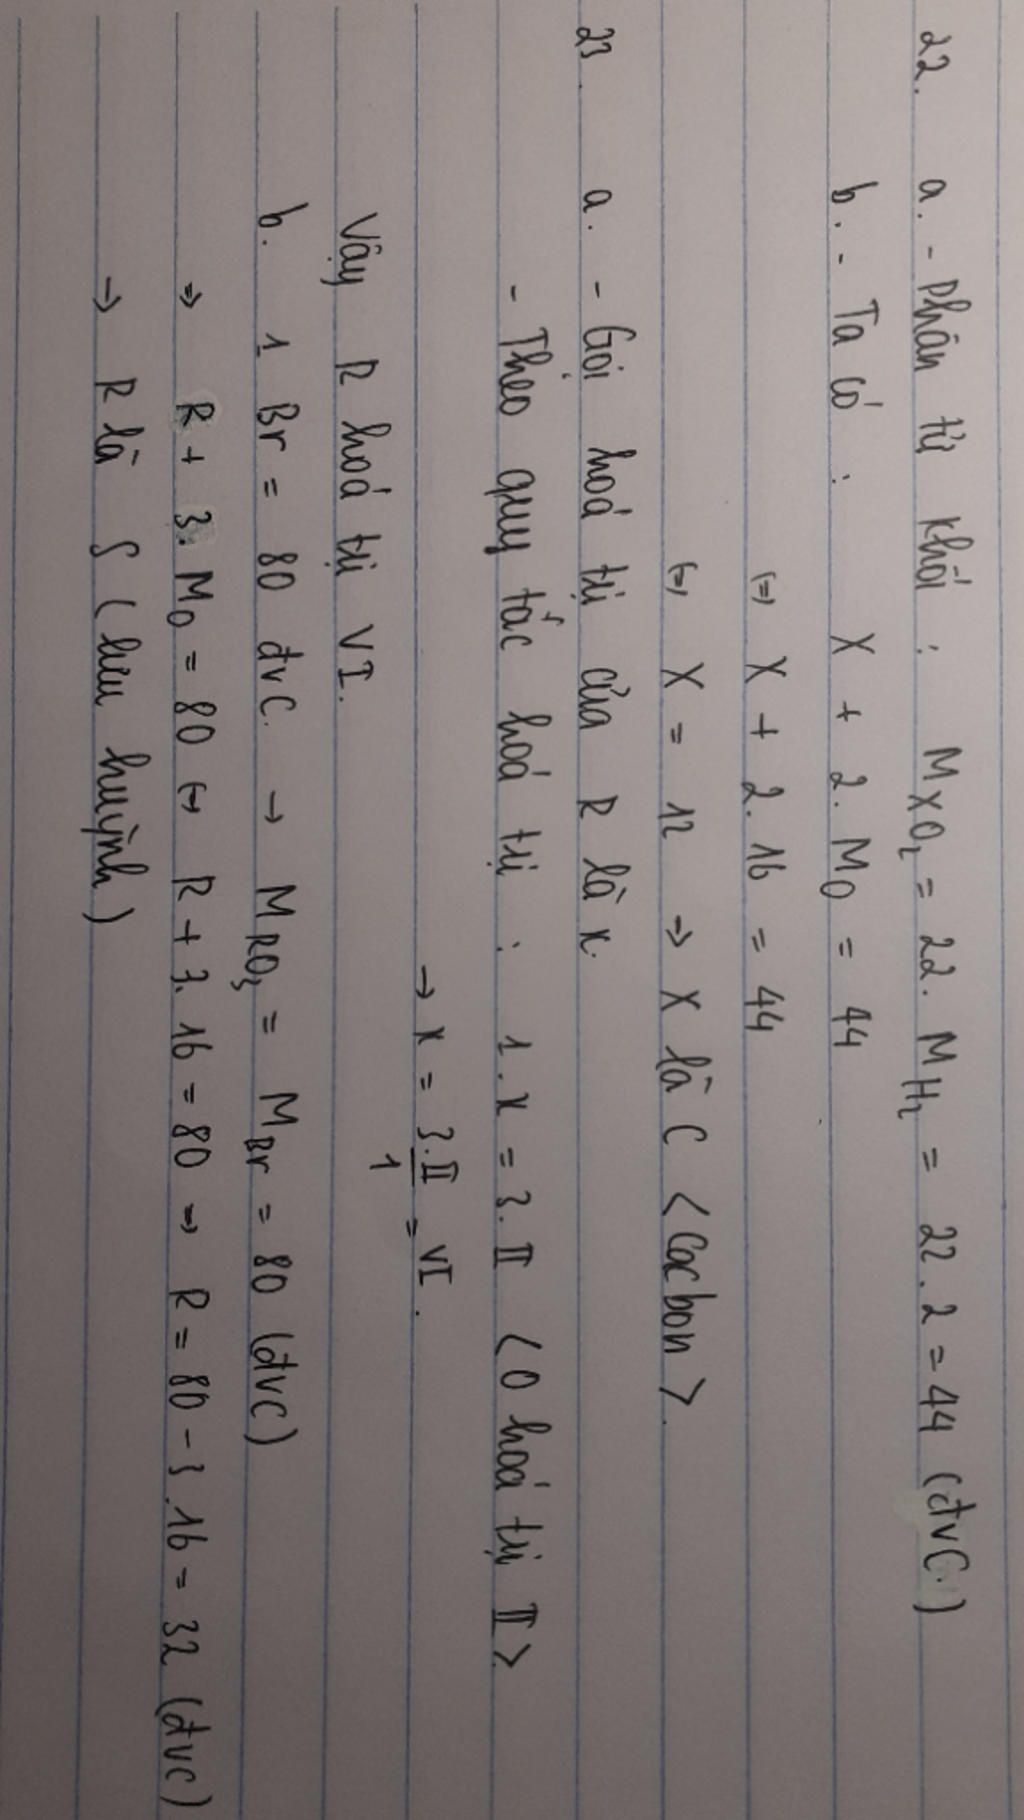 22. a. - Phân tử khối : M_XO₂ = 22. M_H₂ = 22. 2 = 44 (đvC)
b. - Ta có : X + 2. M_O = 44
(=) X + 2. 16 = 44
(=) X = 12 => X là C <Cacbon>.
23. a. - Gọi hoá trị của R là x.
- Theo quy tắc hoá trị : 1. x = 3. II <O hoá trị II>
→ x = 3.II/1 = VI.
Vậy R hoá trị VI.
b. 1 Br = 80 đvC. → M_RO₃ = M_Br = 80 (đvC)
=> R + 3. M_O = 80 (=) R + 3. 16 = 80 => R = 80 - 3. 16 = 32 (đvC)
→ R là S (lưu huỳnh)